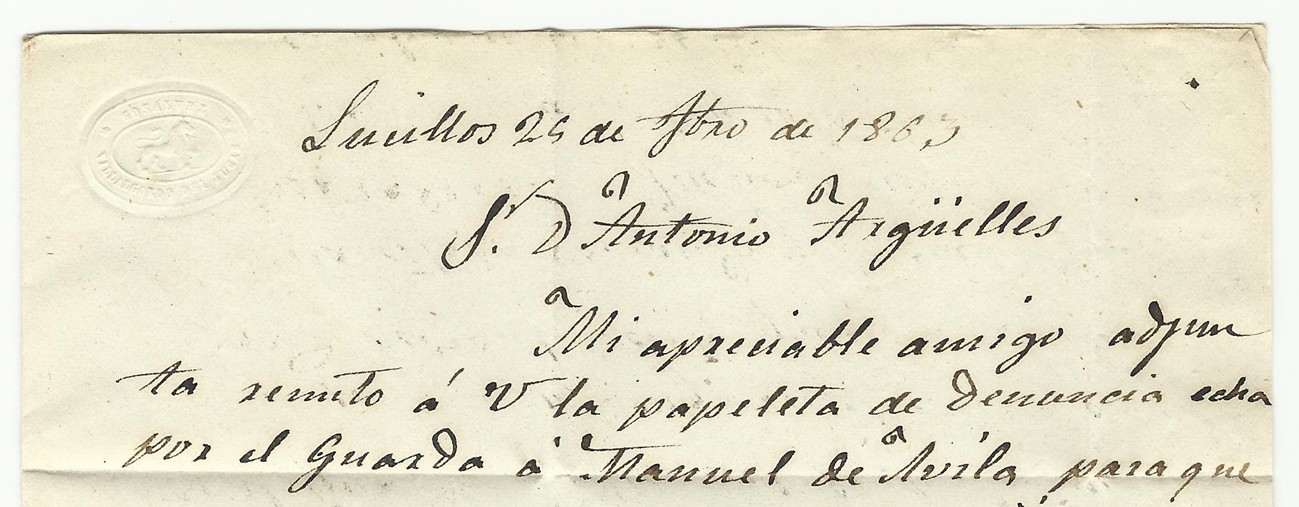 Lucillos 25 de Fbro de 1863
Sr. D Antonio Argüelles
Mi apreciable amigo adjun
ta remito á V la papeleta de denuncia echa
por el Guarda á Manuel de Avila para que